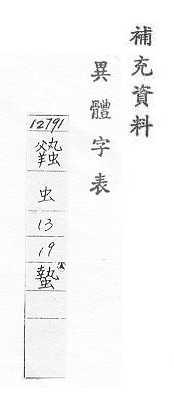 補充資料
異體字表
12791
虫
13
19
蟄